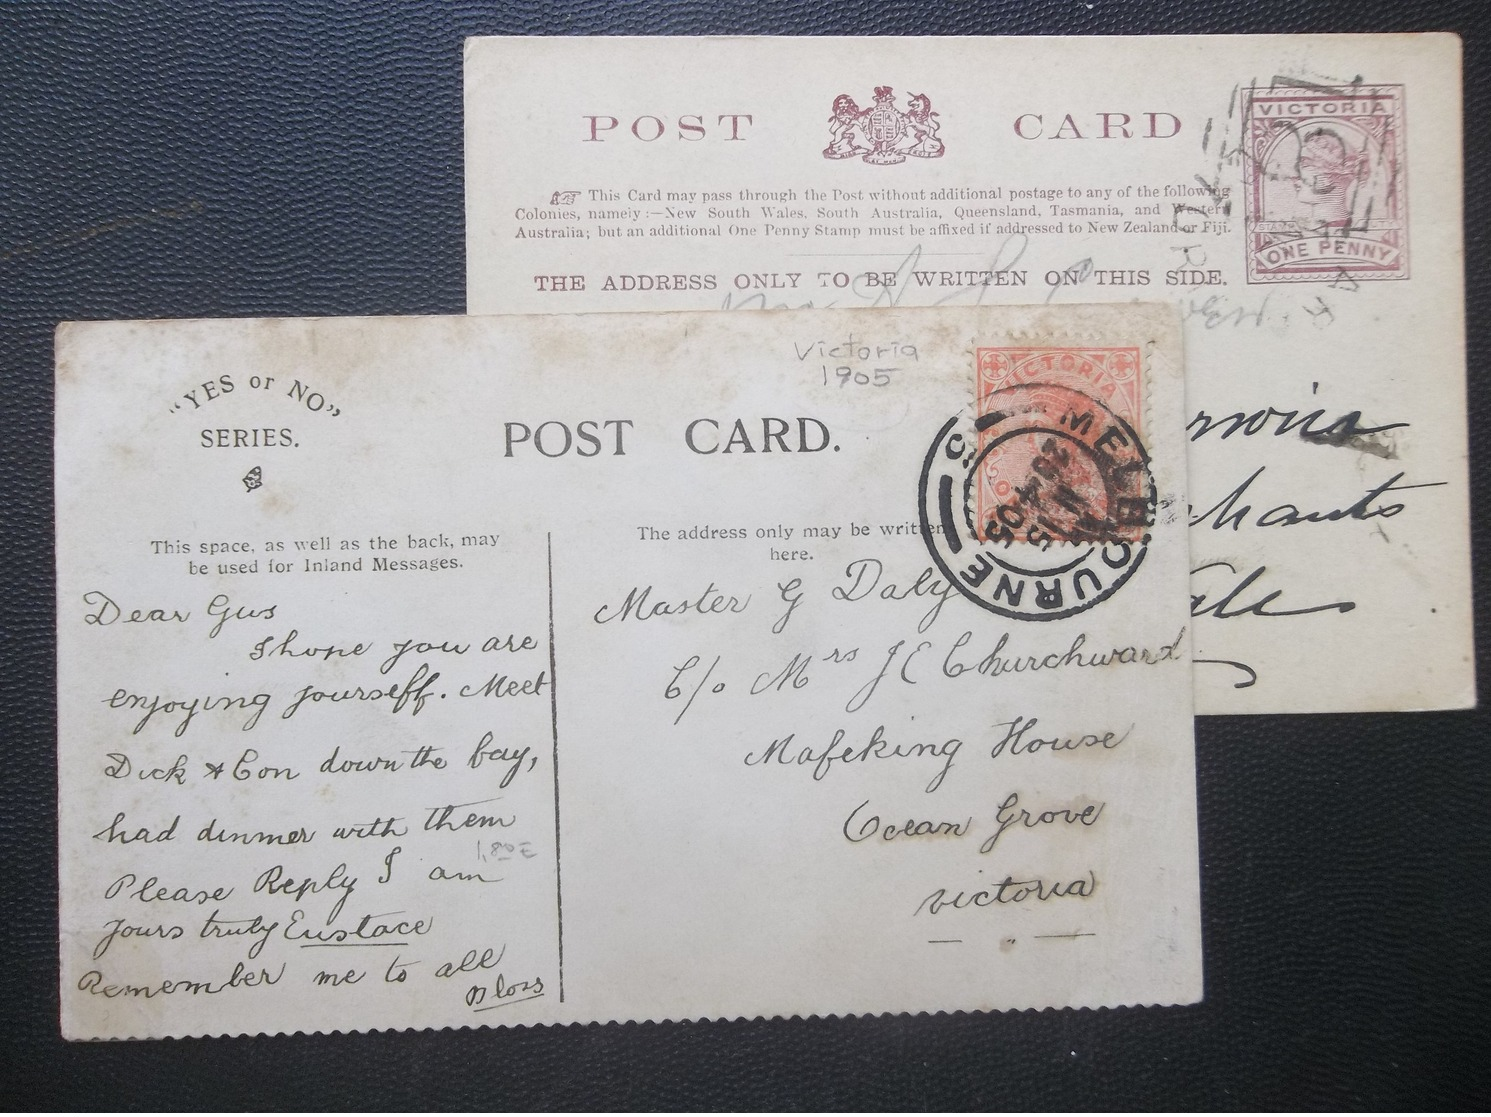 POST CARD
VICTORIA
This Card may pass through the Post without additional postage to any of the following
Colonies, namely :—New South Wales, South Australia, Queensland, Tasmania, and Western
Australia; but an additional One Penny Stamp must be affixed if addressed to New Zealand or Fiji.
ONE PENNY
THE ADDRESS ONLY TO BE WRITTEN ON THIS SIDE.
"YES or NO"
SERIES.
POST CARD.
Victoria
1905
VICTORIA
MELBOURNE
This space, as well as the back, may
be used for Inland Messages.
The address only may be written
here.
Dear Gus
I hope you are
enjoying yourself. Meet
Dick & Con down the bay,
had dinner with them
1,80 E
Please Reply I am
yours truly Eustace
Remember me to all
Master G Daly
C/o Mrs J E Churchward
Mafeking House
Ocean Grove
victoria